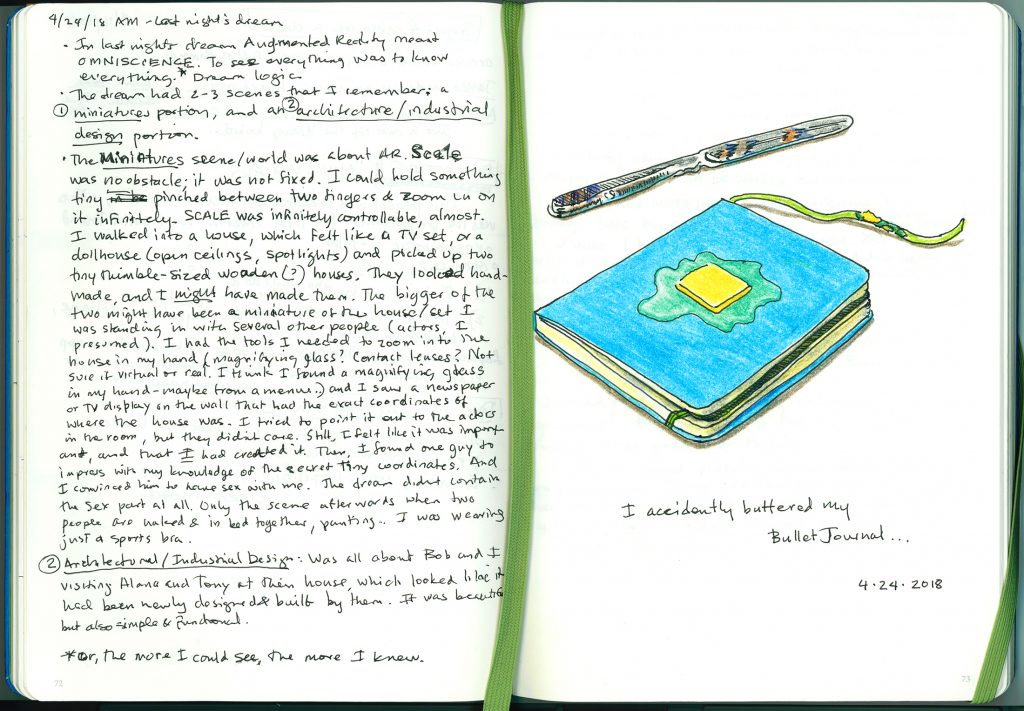 4/24/18 AM - Last night's dream
• In last nights dream Augmented Reality meant
OMNISCIENCE. To see everything was to know
everything.* Dream logic
• The dream had 2-3 scenes that I remember: a
① miniatures portion, and an ② architecture/industrial
design portion.
• The Miniatures scene/world was about AR. Scale
was no obstacle; it was not fixed. I could hold something
tiny pinched between two fingers & zoom in on
it infinitely. SCALE was infinitely controllable, almost.
I walked into a house, which felt like a TV set, or a
dollhouse (open ceilings, spotlights) and picked up two
tiny thimble-sized wooden (?) houses. They looked hand-
made, and I might have made them. The bigger of the
two might have been a miniature of the house/set I
was standing in with several other people (actors, I
presumed). I had the tools I needed to zoom into the
house in my hand (magnifying glass? Contact lenses? Not
sure if virtual or real. I think I found a magnifying glass
in my hand - maybe from a menu.) and I saw a newspaper
or TV display on the wall that had the exact coordinates of
where the house was. I tried to point it out to the actors
in the room, but they didn't care. Still, I felt like it was import-
ant, and that I had created it. Then, I found one guy to
impress with my knowledge of the secret tiny coordinates. And
I convinced him to have sex with me. The dream didn't contain
the sex part at all. Only the scene afterwards when two
people are naked & in bed together, panting.. I was wearing
just a sports bra.
② Architectural/Industrial Design: Was all about Bob and I
visiting Alana and Tony at their house, which looked like it
had been newly designed & built by them. It was beautiful
but also simple & functional.
*Or, the more I could see, the more I knew.
72
I accidently buttered my
Bullet Journal...
4·24·2018
73